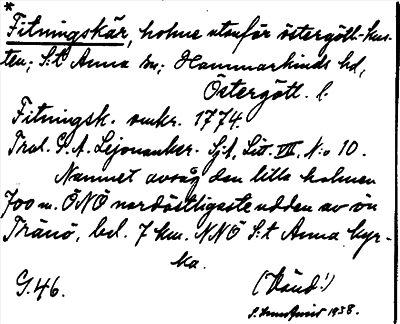 *
Fitningskär, holme utanför östergötl.-kus-
ten; S:t Anna sn; Hammarkinds hd,
Östergötl. l.
Fitningsk. omkr. 1774.
Trol. G. A. Lejonanker. Sjk, Litt. VII, N:o 10.
Namnet avsåg den lilla holmen
700 m. ÖNÖ nordöstligaste udden av ön
Tränö, bel. 7 km. NNÖ S:t Anna kyr-
ka.
G. 46. (Känd!)
1938.